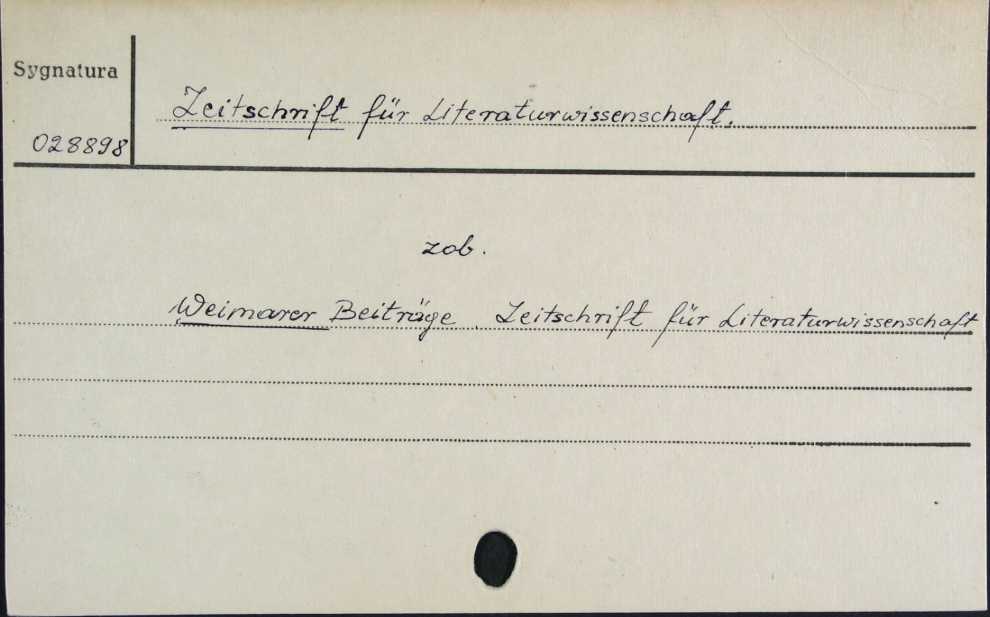 Sygnatura
Zeitschrift für Literaturwissenschaft.
028898
zob.
Weimarer Beiträge. Zeitschrift für Literaturwissenschaft